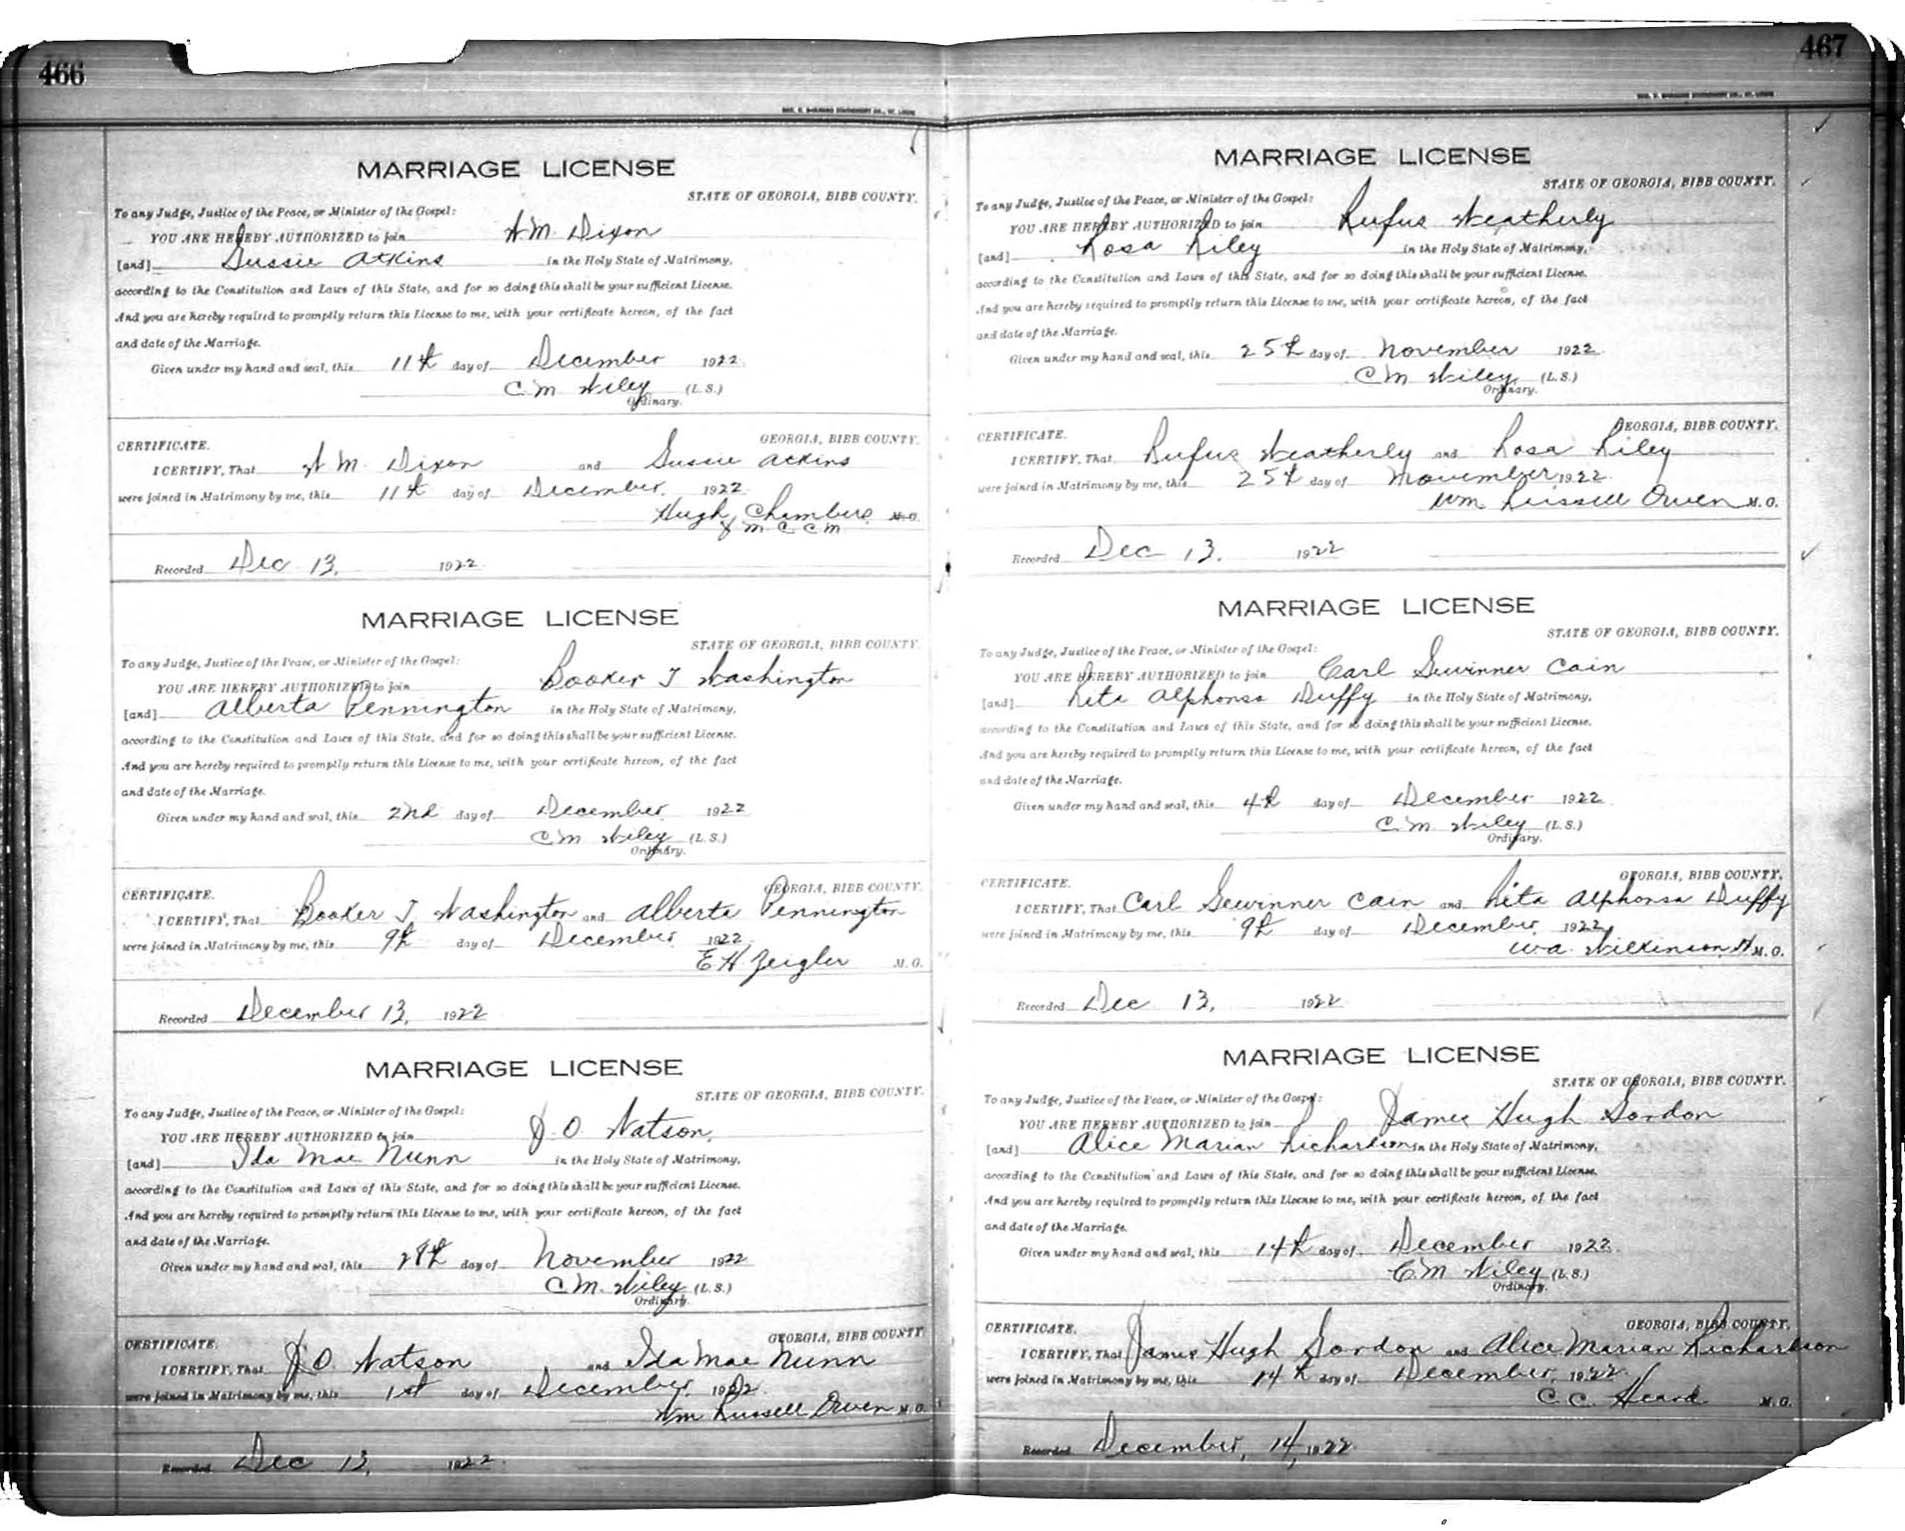 466
MARRIAGE LICENSE
STATE OF GEORGIA, BIBB COUNTY.
To any Judge, Justice of the Peace, or Minister of the Gospel:
YOU ARE HEREBY AUTHORIZED to join W M. Dixon
[and] Sussie Atkins in the Holy State of Matrimony,
according to the Constitution and Laws of this State, and for so doing this shall be your sufficient License.
And you are hereby required to promptly return this License to me, with your certificate hereon, of the fact
and date of the Marriage.
Given under my hand and seal, this 11th day of December 1922
C M Wiley (L.S.)
Ordinary.
CERTIFICATE. GEORGIA, BIBB COUNTY.
I CERTIFY, That W M. Dixon and Sussie Atkins
were joined in Matrimony by me, this 11th day of December, 1922
Hugh Chambers M.G.
J M C C M
Recorded Dec 13, 1922
MARRIAGE LICENSE
STATE OF GEORGIA, BIBB COUNTY.
To any Judge, Justice of the Peace, or Minister of the Gospel:
YOU ARE HEREBY AUTHORIZED to join Booker T Washington
[and] Alberta Pennington in the Holy State of Matrimony,
according to the Constitution and Laws of this State, and for so doing this shall be your sufficient License.
And you are hereby required to promptly return this License to me, with your certificate hereon, of the fact
and date of the Marriage.
Given under my hand and seal, this 2nd day of December 1922
C M Wiley (L.S.)
Ordinary.
CERTIFICATE. GEORGIA, BIBB COUNTY.
I CERTIFY, That Booker T Washington and Alberta Pennington
were joined in Matrimony by me, this 9th day of December 1922
E H Zeigler M.G.
Recorded December 13, 1922
MARRIAGE LICENSE
STATE OF GEORGIA, BIBB COUNTY.
To any Judge, Justice of the Peace, or Minister of the Gospel:
YOU ARE HEREBY AUTHORIZED to join J O. Watson,
[and] Ida Mae Nunn in the Holy State of Matrimony,
according to the Constitution and Laws of this State, and for so doing this shall be your sufficient License.
And you are hereby required to promptly return this License to me, with your certificate hereon, of the fact
and date of the Marriage.
Given under my hand and seal, this 28th day of November 1922
C M. Wiley (L.S.)
Ordinary.
CERTIFICATE. GEORGIA, BIBB COUNTY
I CERTIFY, That J O. Watson and Ida Mae Nunn
were joined in Matrimony by me, this 1st day of December, 1922
Wm Russell Owen M.G.
Recorded Dec 13, 1922
467
MARRIAGE LICENSE
STATE OF GEORGIA, BIBB COUNTY.
To any Judge, Justice of the Peace, or Minister of the Gospel:
YOU ARE HEREBY AUTHORIZED to join Rufus Weatherly
[and] Rosa Riley in the Holy State of Matrimony,
according to the Constitution and Laws of this State, and for so doing this shall be your sufficient License.
And you are hereby required to promptly return this License to me, with your certificate hereon, of the fact
and date of the Marriage.
Given under my hand and seal, this 25th day of November 1922
C M Wiley (L.S.)
Ordinary.
CERTIFICATE. GEORGIA, BIBB COUNTY.
I CERTIFY, That Rufus Weatherly and Rosa Riley
were joined in Matrimony by me, this 25th day of November 1922
Wm Russell Owen M.G.
Recorded Dec 13, 1922
MARRIAGE LICENSE
STATE OF GEORGIA, BIBB COUNTY.
To any Judge, Justice of the Peace, or Minister of the Gospel:
YOU ARE HEREBY AUTHORIZED to join Carl Gewinner Cain
[and] Rita Alphonsa Duffy in the Holy State of Matrimony,
according to the Constitution and Laws of this State, and for so doing this shall be your sufficient License.
And you are hereby required to promptly return this License to me, with your certificate hereon, of the fact
and date of the Marriage.
Given under my hand and seal, this 4th day of December 1922
C. M. Wiley (L.S.)
Ordinary.
CERTIFICATE. GEORGIA, BIBB COUNTY.
I CERTIFY, That Carl Gewinner Cain and Rita Alphonsa Duffy
were joined in Matrimony by me, this 9th day of December, 1922
W.A. Wilkinson M.G.
Recorded Dec 13, 1922
MARRIAGE LICENSE
STATE OF GEORGIA, BIBB COUNTY.
To any Judge, Justice of the Peace, or Minister of the Gospel:
YOU ARE HEREBY AUTHORIZED to join James Hugh Gordon
[and] Alice Marian Richardson in the Holy State of Matrimony,
according to the Constitution and Laws of this State, and for so doing this shall be your sufficient License.
And you are hereby required to promptly return this License to me, with your certificate hereon, of the fact
and date of the Marriage.
Given under my hand and seal, this 14th day of December 1922
C. M Wiley (L.S.)
Ordinary.
CERTIFICATE. GEORGIA, BIBB COUNTY.
I CERTIFY, That James Hugh Gordon and Alice Marian Richardson
were joined in Matrimony by me, this 14th day of December, 1922
C. C. Heard M.G.
Recorded December, 14, 1922